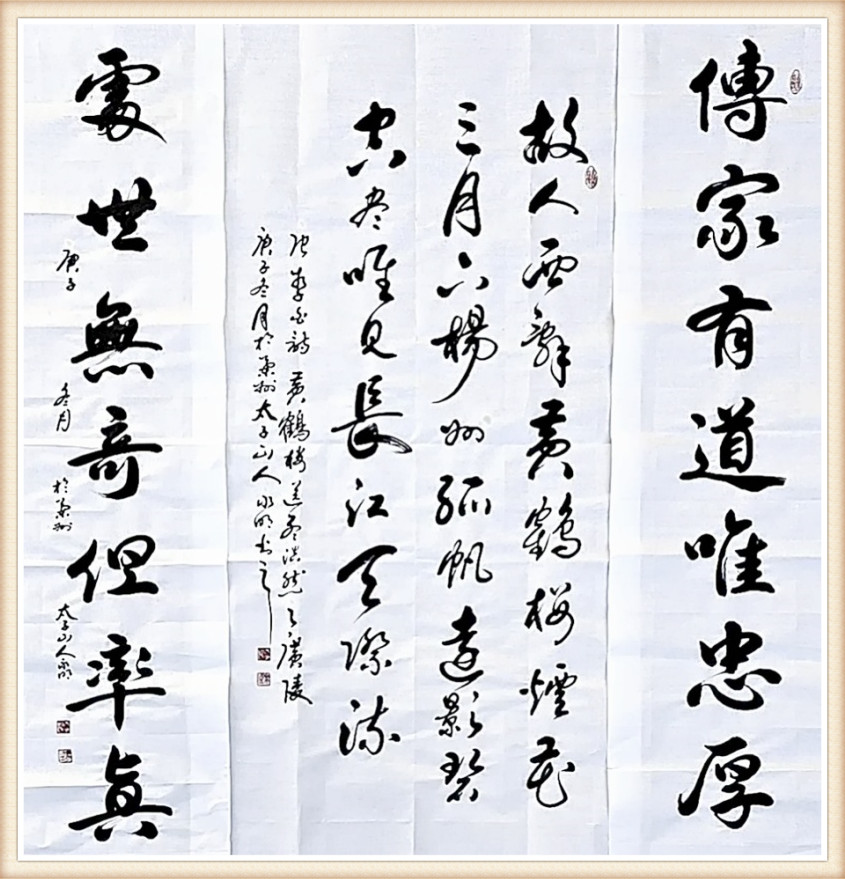 傳家有道唯忠厚
故人西辭黃鶴樓煙花
三月下楊州孤帆遠影碧
空盡唯見長江天際流
李白詩黃鶴樓送孟浩然之廣陵
庚子冬月於州太子山人永明書
處世無奇但率真
庚子冬月於州太子山人永明